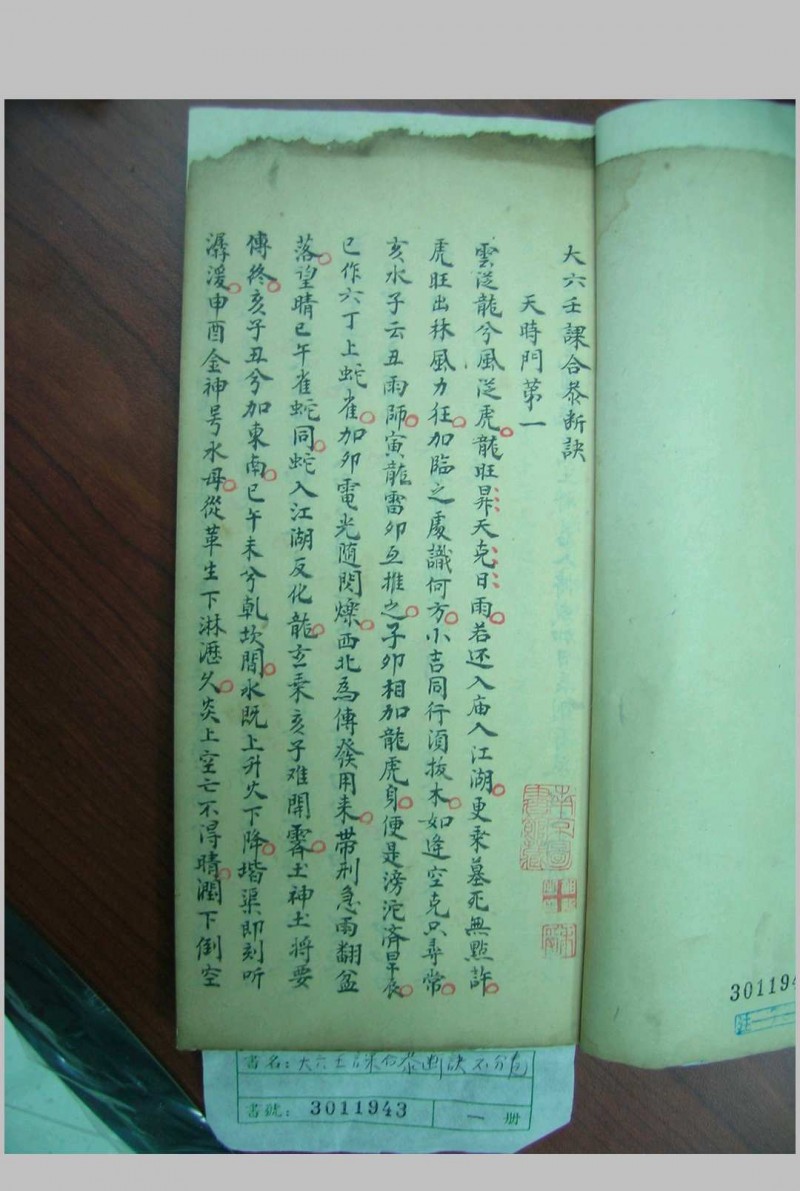 大六壬課合叅断訣
天時門第一
雲従龍兮風従虎龍旺昇天克日雨若还入庙入江湖更乗墓死無點許
虎旺出林風力狂加臨之處識何方小吉同行須拔木如逢空克只尋常
亥水子云丑雨師寅龍雷卯互推之子卯相加龍虎身便是滂沱濟旱夜
已作六丁上蛇雀加卯電光随閃爍西北為傳發用来帶刑急雨翻盆
落望晴已午雀蛇同蛇入江湖反化龍玄乗亥子难開霽土神土将要
傳终亥子丑兮加東南已午未兮乾坎間水既上升火下降堦渠即刻听
潺湲申酉金神号水母從革生下淋漓久炎上空亡不得晴潤下倒空
書名：大六壬課合叅断訣不分卷
書號：3011943 一 册